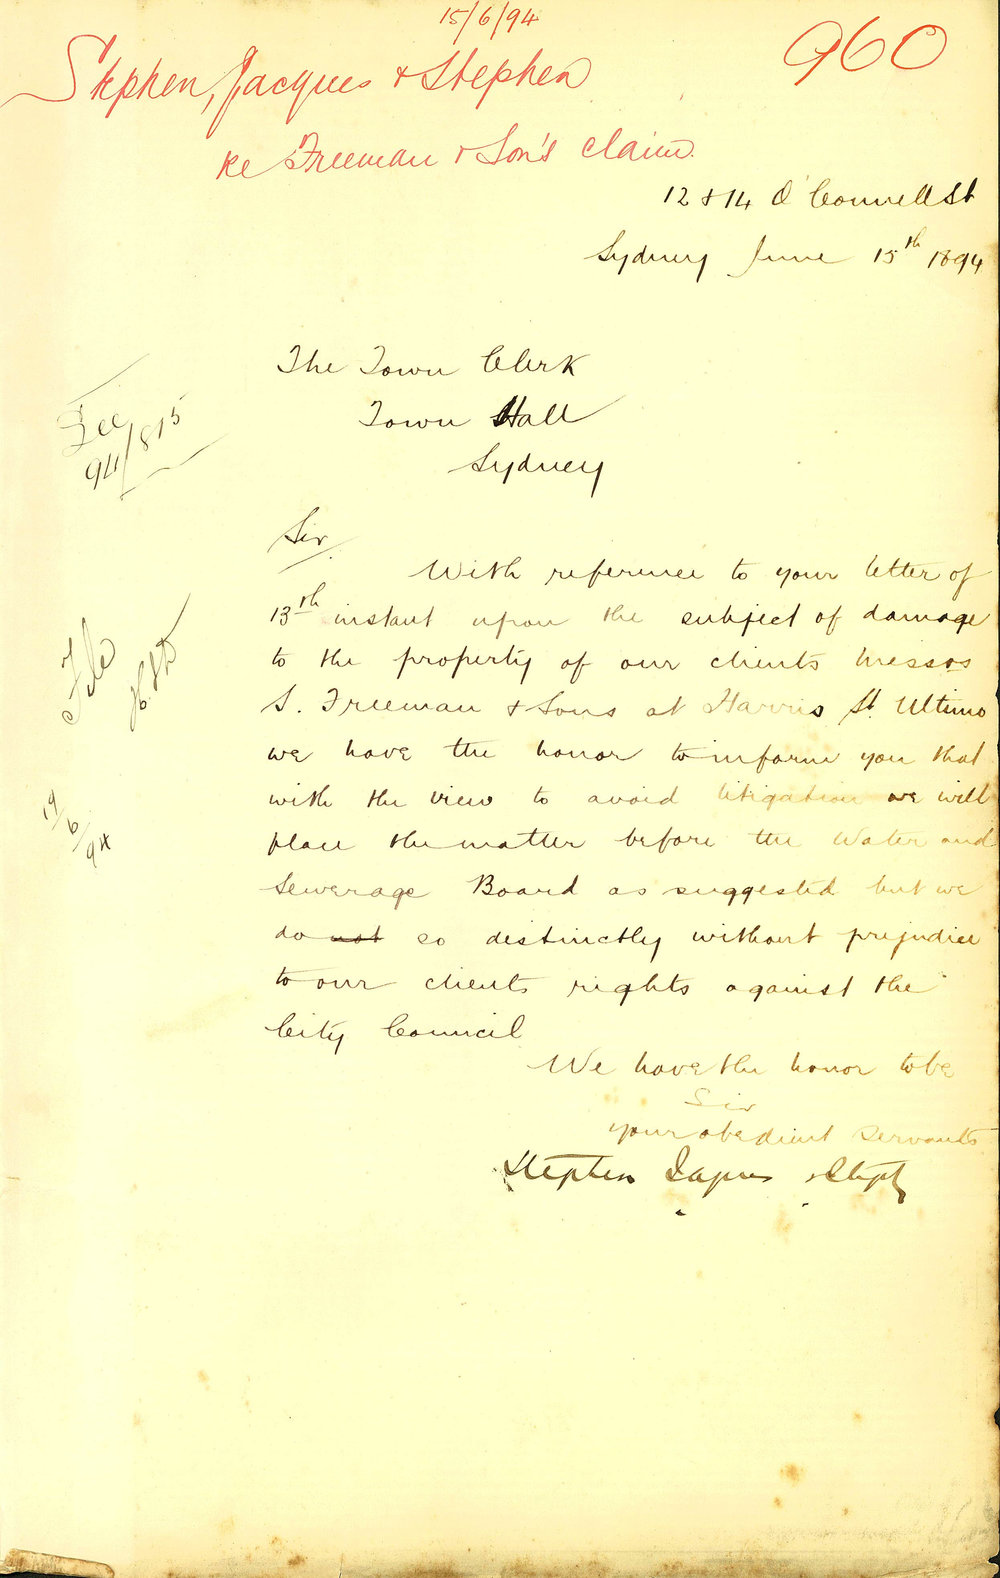 15/6/94
960
Stephen, Jacques & Stephen
re Freeman & Son's claim.
12 & 14 O'Connell St
Sydney June 15th 1894
The Town Clerk
Town Hall
Sydney
See
94/815
Sir
With reference to your letter of
13th instant upon the subject of damage
to the property of our clients Messrs
S. Freeman & Sons at Harris St. Ultimo
we have the honor to inform you that
with the view to avoid litigation we will
place the matter before the Water and
Sewerage Board as suggested but we
do not so distinctly without prejudice
to our clients rights against the
City Council
File
19/6/94
We have the honor to be
Sir
your obedient servants
Stephen Jaques & Steph